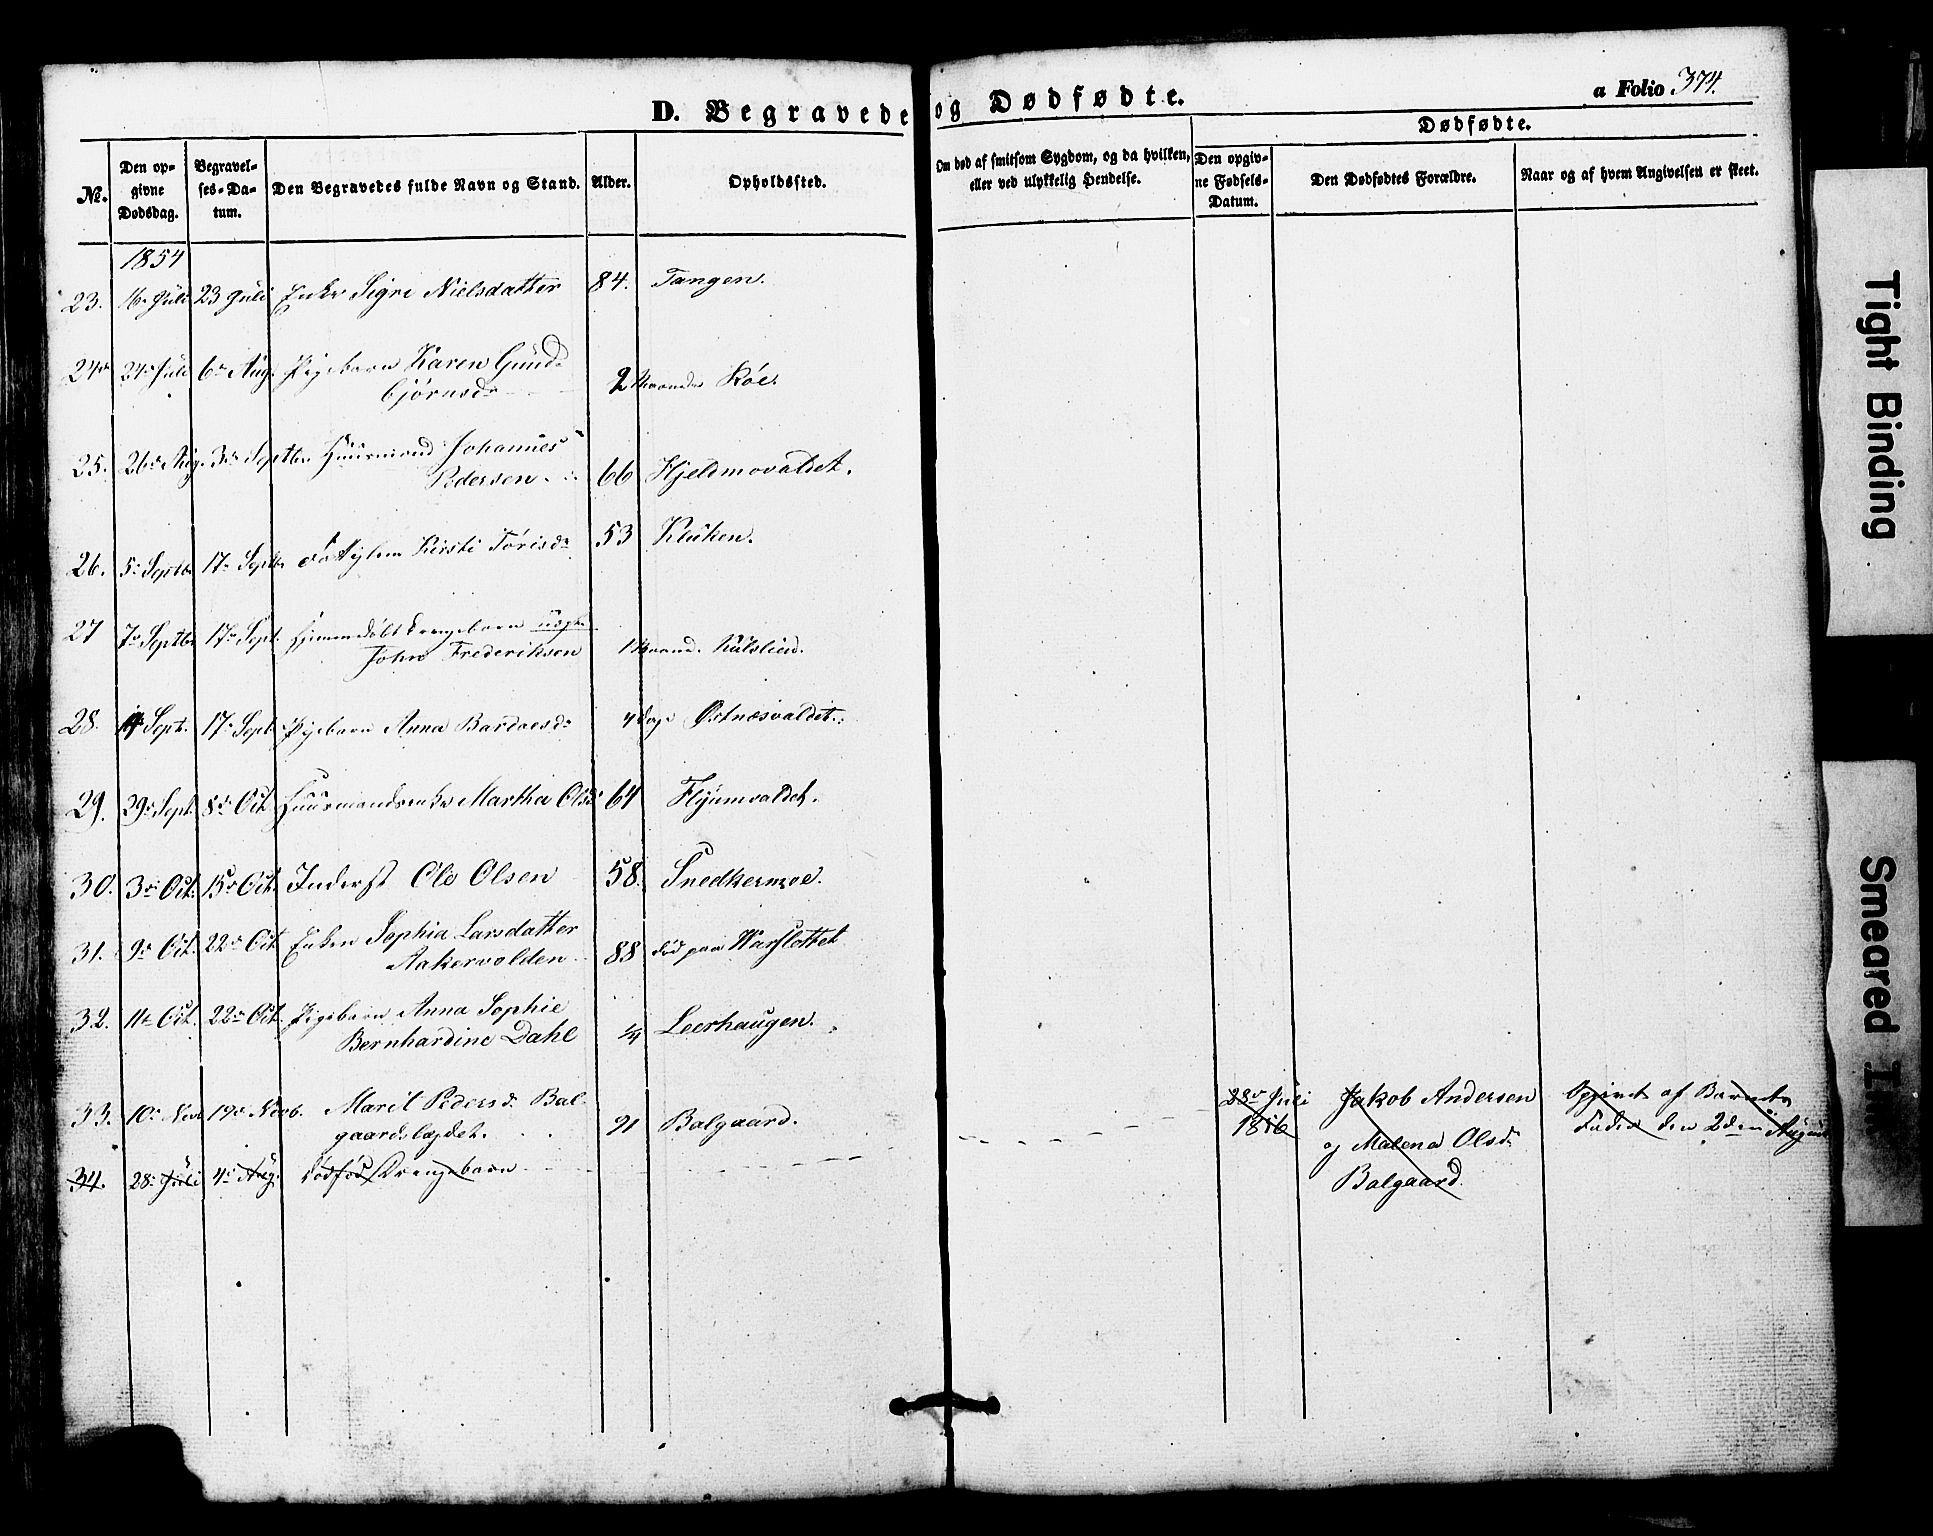 D. Begravede og Dødfødte.
a Folio 374.
Dødfødte.
No.
Den op-
givne
Dødsdag.
Begravel-
ses-Da-
tum.
Den Begravedes fulde Navn og Stand.
Alder.
Opholdssted.
Om død af smitsom Sygdom, og da hvilken,
eller ved ulykkelig Hendelse.
Den opgiv-
ne Fødsels-
Datum.
Den Dødfødtes Forældre.
Naar og af hvem Angivelsen er skeet.
1854
23. 16 Juli 23 Juli Enke Sigri Nielsdatter 84. Tangen.
24 24 Juli 6 Aug. Pigebarn Karen Gund-
bjørnsd. 2 Maaneder Røe.
25. 26 Aug. 3 Septbr Huusmand Johannes
Pedersen 66 Hjeldmovaldet.
26. 5 Septbr 17 Septbr Kirsti Torisd. 53 Kluken.
27 7 Septbr 17 Sept. Hjemmedøbt Drengebarn
John Frederiksen 1 Maaned.
28. Sept. 17 Sept Pigebarn Anna Bardoesd. Dage Østnæsvaldet.
29. 29 Sept. 8 Oct. Huusmandsenke Martha Olsd. 64 Flyumvaldet.
30. 3 Oct. 15 Oct. Inderst Ole Olsen 58. Snedkermoe.
31. 9 Oct. 22 Oct Enken Sophia Larsdatter
Aakervolden 88 død paa Warslottet
32. 11 Oct. 22 Oct. Pigebarn Anna Sophie
Bernhardine Dahl 1/4 Leerhaugen.
33. 10 Novb 19 Novb. Marit Pedersd. Bal-
gaardslægdet. 91 Balgaard.
34. 28 Juli 4 Aug. Dødfød Drengebarn
28 Juli
Jakob Andersen
og Malena Olsd.
Balgaard.
Opgivet af Barnets
Fader den 2den August
Tight Binding
Smeared Ink